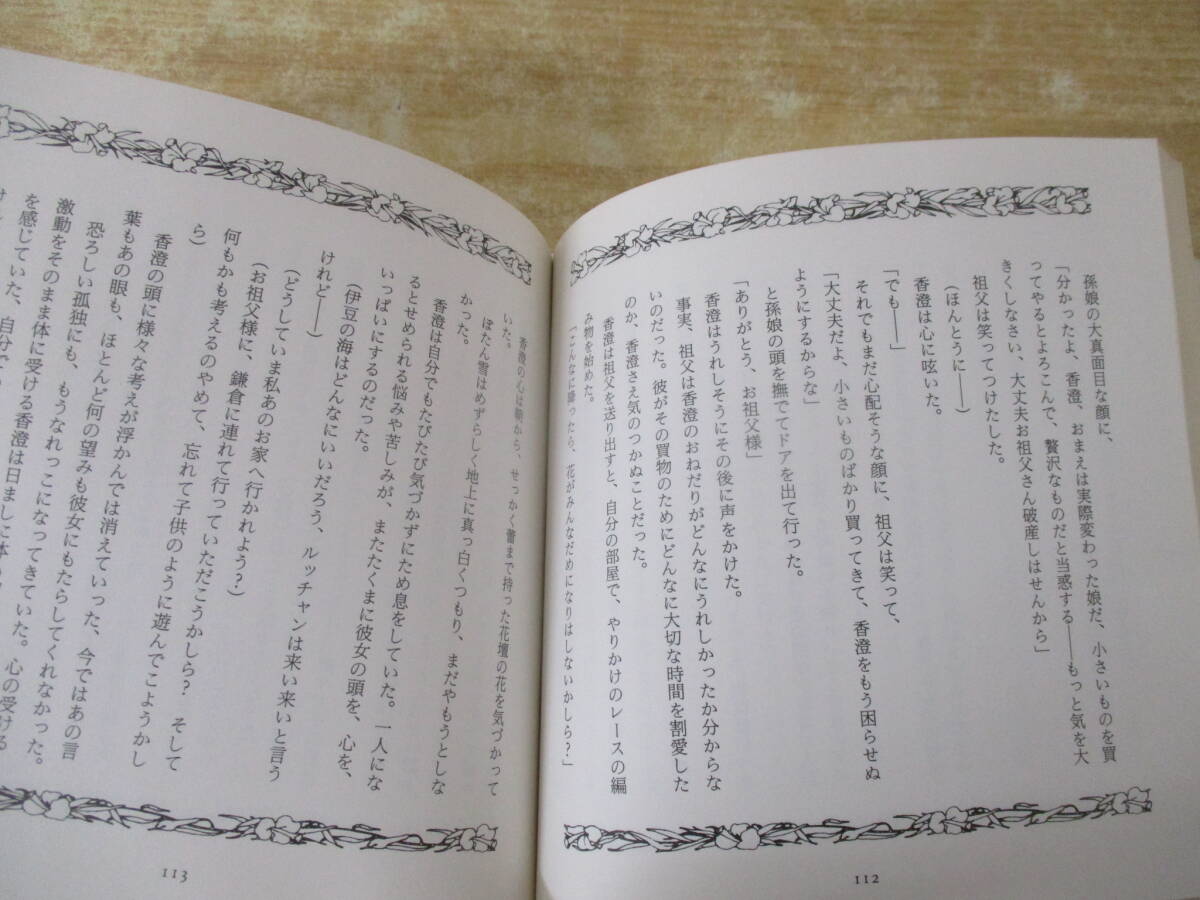 孫娘の大真面目な顔に、
「分かったよ、香澄、おまえは実際変わった娘だ、小さいものを買
ってやるとよろこんで、贅沢なものだと当惑する――もっと気を大
きくしなさい、大丈夫お祖父さん破産しはせんから」
祖父は笑ってつけたした。
(ほんとうに――)
香澄は心に呟いた。
「でも――」
それでもまだ心配そうな顔に、祖父は笑って、
「大丈夫だよ、小さいものばかり買ってきて、香澄をもう困らせぬ
ようにするからな」
と孫娘の頭を撫でてドアを出て行った。
「ありがとう、お祖父様」
香澄はうれしそうにその後に声をかけた。
事実、祖父は香澄のおねだりがどんなにうれしかったか分からな
いのだった。彼がその買物のためにどんなに大切な時間を割愛した
のか、香澄さえ気のつかぬことだった。
香澄は祖父を送り出すと、自分の部屋で、やりかけのレースの編
み物を始めた。
「こんなに降ったら、花がみんなだめになりはしないかしら?」
112
香澄の心は朝から、せっかく蕾まで持った花壇の花を気づかって
いた。
ぼたん雪はめずらしく地上に真っ白くつもり、まだやもうとしな
かった。
香澄は自分でもたびたび気づかずにため息をしていた。一人にな
るとせめられる悩みや苦しみが、またたくまに彼女の頭を、心を、
いっぱいにするのだった。
(伊豆の海はどんなにいいだろう、ルッチャンは来い来いと言う
けれど――)
(どうしていま私あのお家へ行かれよう?)
(お祖父様に、鎌倉に連れて行っていただこうかしら? そして
何もかも考えるのやめて、忘れて子供のように遊んでこようかし
ら)
香澄の頭に様々な考えが浮かんでは消えていった、今ではあの言
葉もあの眼も、ほとんど何の望みも彼女にもたらしてくれなかった。
恐ろしい孤独にも、もうなれっこになってきていた。心の受ける
激動をそのまま体に受ける香澄は日ましに体
を感じていた、自分で
113